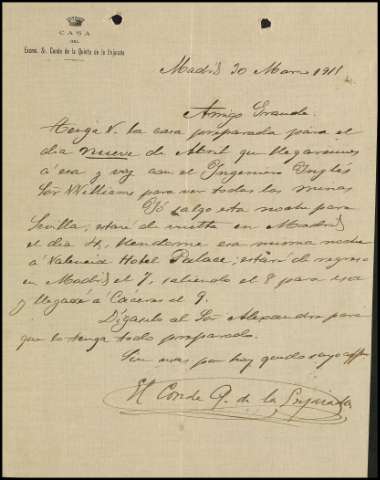 CASA
DEL
Excmo. Sr. Conde de la Quinta de la Enjarada
Madrid 30 Marzo 1911
Amigo Grande
Tenga V. la casa preparada para el
dia nueve de Abril que llegaremos
á esa y voy con el Ingeniero Inglés
Sor Williams para ver todas las minas
Yó salgo esta noche para
Sevilla, estaré de vuelta en Madrid
el dia 4, yendome esa misma noche
á Valencia Hotel Palace; estaré de regreso
en Madrid el 7, saliendo el 8 para esa
y llegaré á Cáceres el 9.
Digaselo al Sor Alexandre para
que lo tenga todo preparado.
Sin mas por hoy quedo suyo affmo
El Conde Q. de la Enjarada